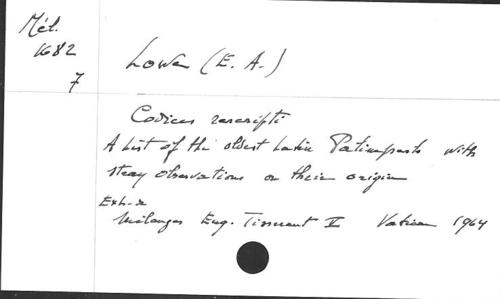 Mél.
1682
7
Lowe (E. A.)
Codices rescripti
A list of the oldest Latin Palimpsests with
stray observations on their origin
Extr. de
Mélanges Eug. Tisserant V Vatican 1964